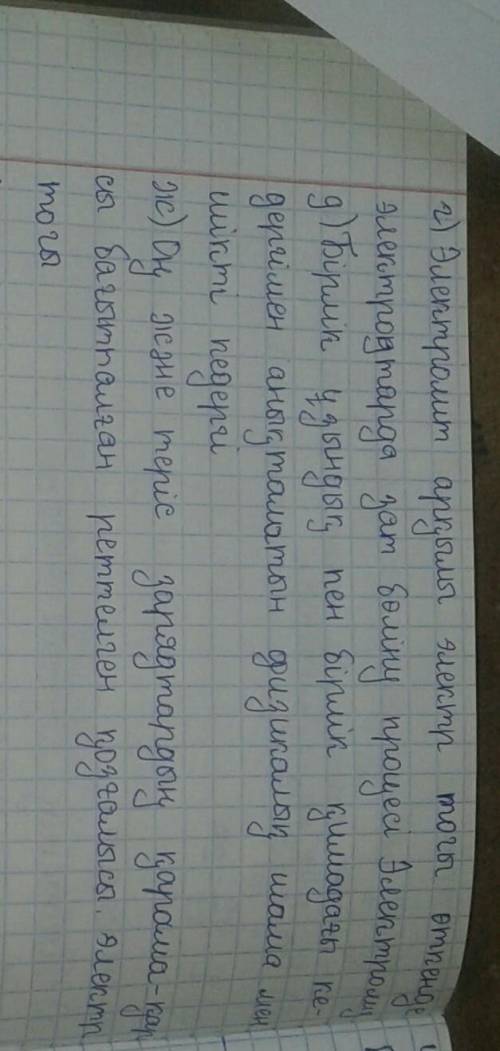 г) Электролит арқылы электр тогы өткенде
электродтарда зат бөліну процесі Электроли
д) Бірлік ұзындық пен бірлік қимадағы ке-
дергімен анықталатын физикалық шама мен
шікті кедергі
ж) Оң және теріс зарядтардың қарама-қар
сы бағытталған реттелген қозғалысы. электр
тогы